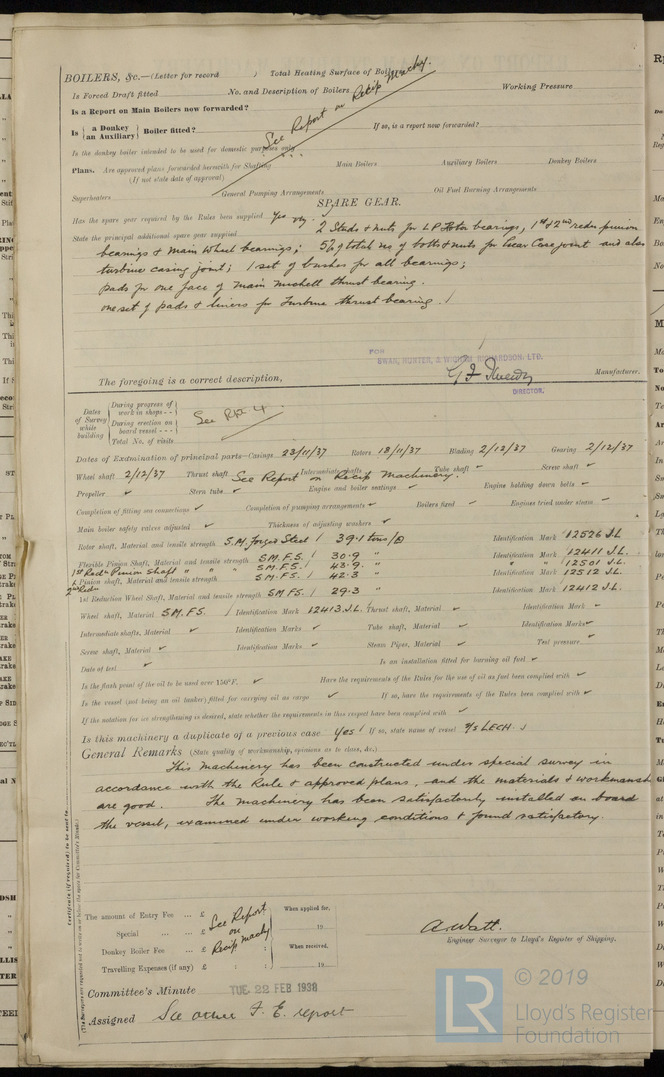 BOILERS, &c.—(Letter for record ) Total Heating Surface of Boilers
Is Forced Draft fitted No. and Description of Boilers Working Pressure
See Report on Recip Machy.
Is a Report on Main Boilers now forwarded?
Is { a Donkey / an Auxiliary } Boiler fitted? If so, is a report now forwarded?
Is the donkey boiler intended to be used for domestic purposes only
Plans. Are approved plans forwarded herewith for Shafting Main Boilers Auxiliary Boilers Donkey Boilers
(If not state date of approval)
Superheaters General Pumping Arrangements Oil Fuel Burning Arrangements
SPARE GEAR.
Has the spare gear required by the Rules been supplied Yes
State the principal additional spare gear supplied 2 Studs & nuts for LP Rotor bearings, 1st & 2nd redn pinion
bearings & main wheel bearings; 5% of total no of bolts & nuts for Gear Case joint and also
turbine casing joint; 1 set of bushes for all bearings;
pads for one face of main michell thrust bearing.
one set of pads & liners for Turbine thrust bearing.
FOR
SWAN, HUNTER, & WIGHAM RICHARDSON, LTD.
The foregoing is a correct description, Manufacturer.
DIRECTOR.
Dates of Survey while building
During progress of work in shops - -
During erection on board vessel - - -
Total No. of visits
See Rpt 4
Dates of Examination of principal parts—Casings 23/11/37 Rotors 18/11/37 Blading 2/12/37 Gearing 2/12/37
Wheel shaft 2/12/37 Thrust shaft Intermediate shafts Tube shaft ✓ Screw shaft ✓
See Report on Recip Machinery.
Propeller ✓ Stern tube ✓ Engine and boiler seatings ✓ Engine holding down bolts ✓
Completion of fitting sea connections ✓ Completion of pumping arrangements ✓ Boilers fixed ✓ Engines tried under steam ✓
Main boiler safety valves adjusted ✓ Thickness of adjusting washers ✓
Rotor shaft, Material and tensile strength S.M. Forged Steel 39.1 tons/□" Identification Mark 12526 J.L
Flexible Pinion Shaft, Material and tensile strength S.M.F.S. 30.9 " Identification Mark 12411 J.L.
1st Redn Pinion Shaft " " " S.M.F.S. 43.9 " " " 12501 J.L.
2nd Redn Pinion shaft, Material and tensile strength S.M.F.S. 42.3 " Identification Mark 12512 J.L.
1st Reduction Wheel Shaft, Material and tensile strength S.M.F.S. 29.3 " Identification Mark 12412 J.L.
Wheel shaft, Material S.M.F.S. Identification Mark 12413 J.L. Thrust shaft, Material ✓ Identification Mark ✓
Intermediate shafts, Material ✓ Identification Marks ✓ Tube shaft, Material ✓ Identification Marks ✓
Screw shaft, Material ✓ Identification Marks ✓ Steam Pipes, Material ✓ Test pressure ✓
Date of test ✓ Is an installation fitted for burning oil fuel ✓
Is the flash point of the oil to be used over 150°F. ✓ Have the requirements of the Rules for the use of oil as fuel been complied with ✓
Is the vessel (not being an oil tanker) fitted for carrying oil as cargo ✓ If so, have the requirements of the Rules been complied with ✓
If the notation for ice strengthening is desired, state whether the requirements in this respect have been complied with ✓
Is this machinery a duplicate of a previous case Yes If so, state name of vessel S/S LECH
General Remarks (State quality of workmanship, opinions as to class, &c.)
This machinery has been constructed under special survey in
accordance with the Rule & approved plans, and the materials & workmansh
are good. The machinery has been satisfactorily installed on board
the vessel, examined under working conditions & found satisfactory.
The amount of Entry Fee ... £ When applied for,
Special ... ... £ 19
Donkey Boiler Fee ... £ When received,
Travelling Expenses (if any) £ 19
See Report on Recip Machy
A. Watt.
Engineer Surveyor to Lloyd's Register of Shipping.
Committee's Minute TUE 22 FEB 1938
Assigned See other F.E. report
LR
© 2019
Lloyd's Register
Foundation